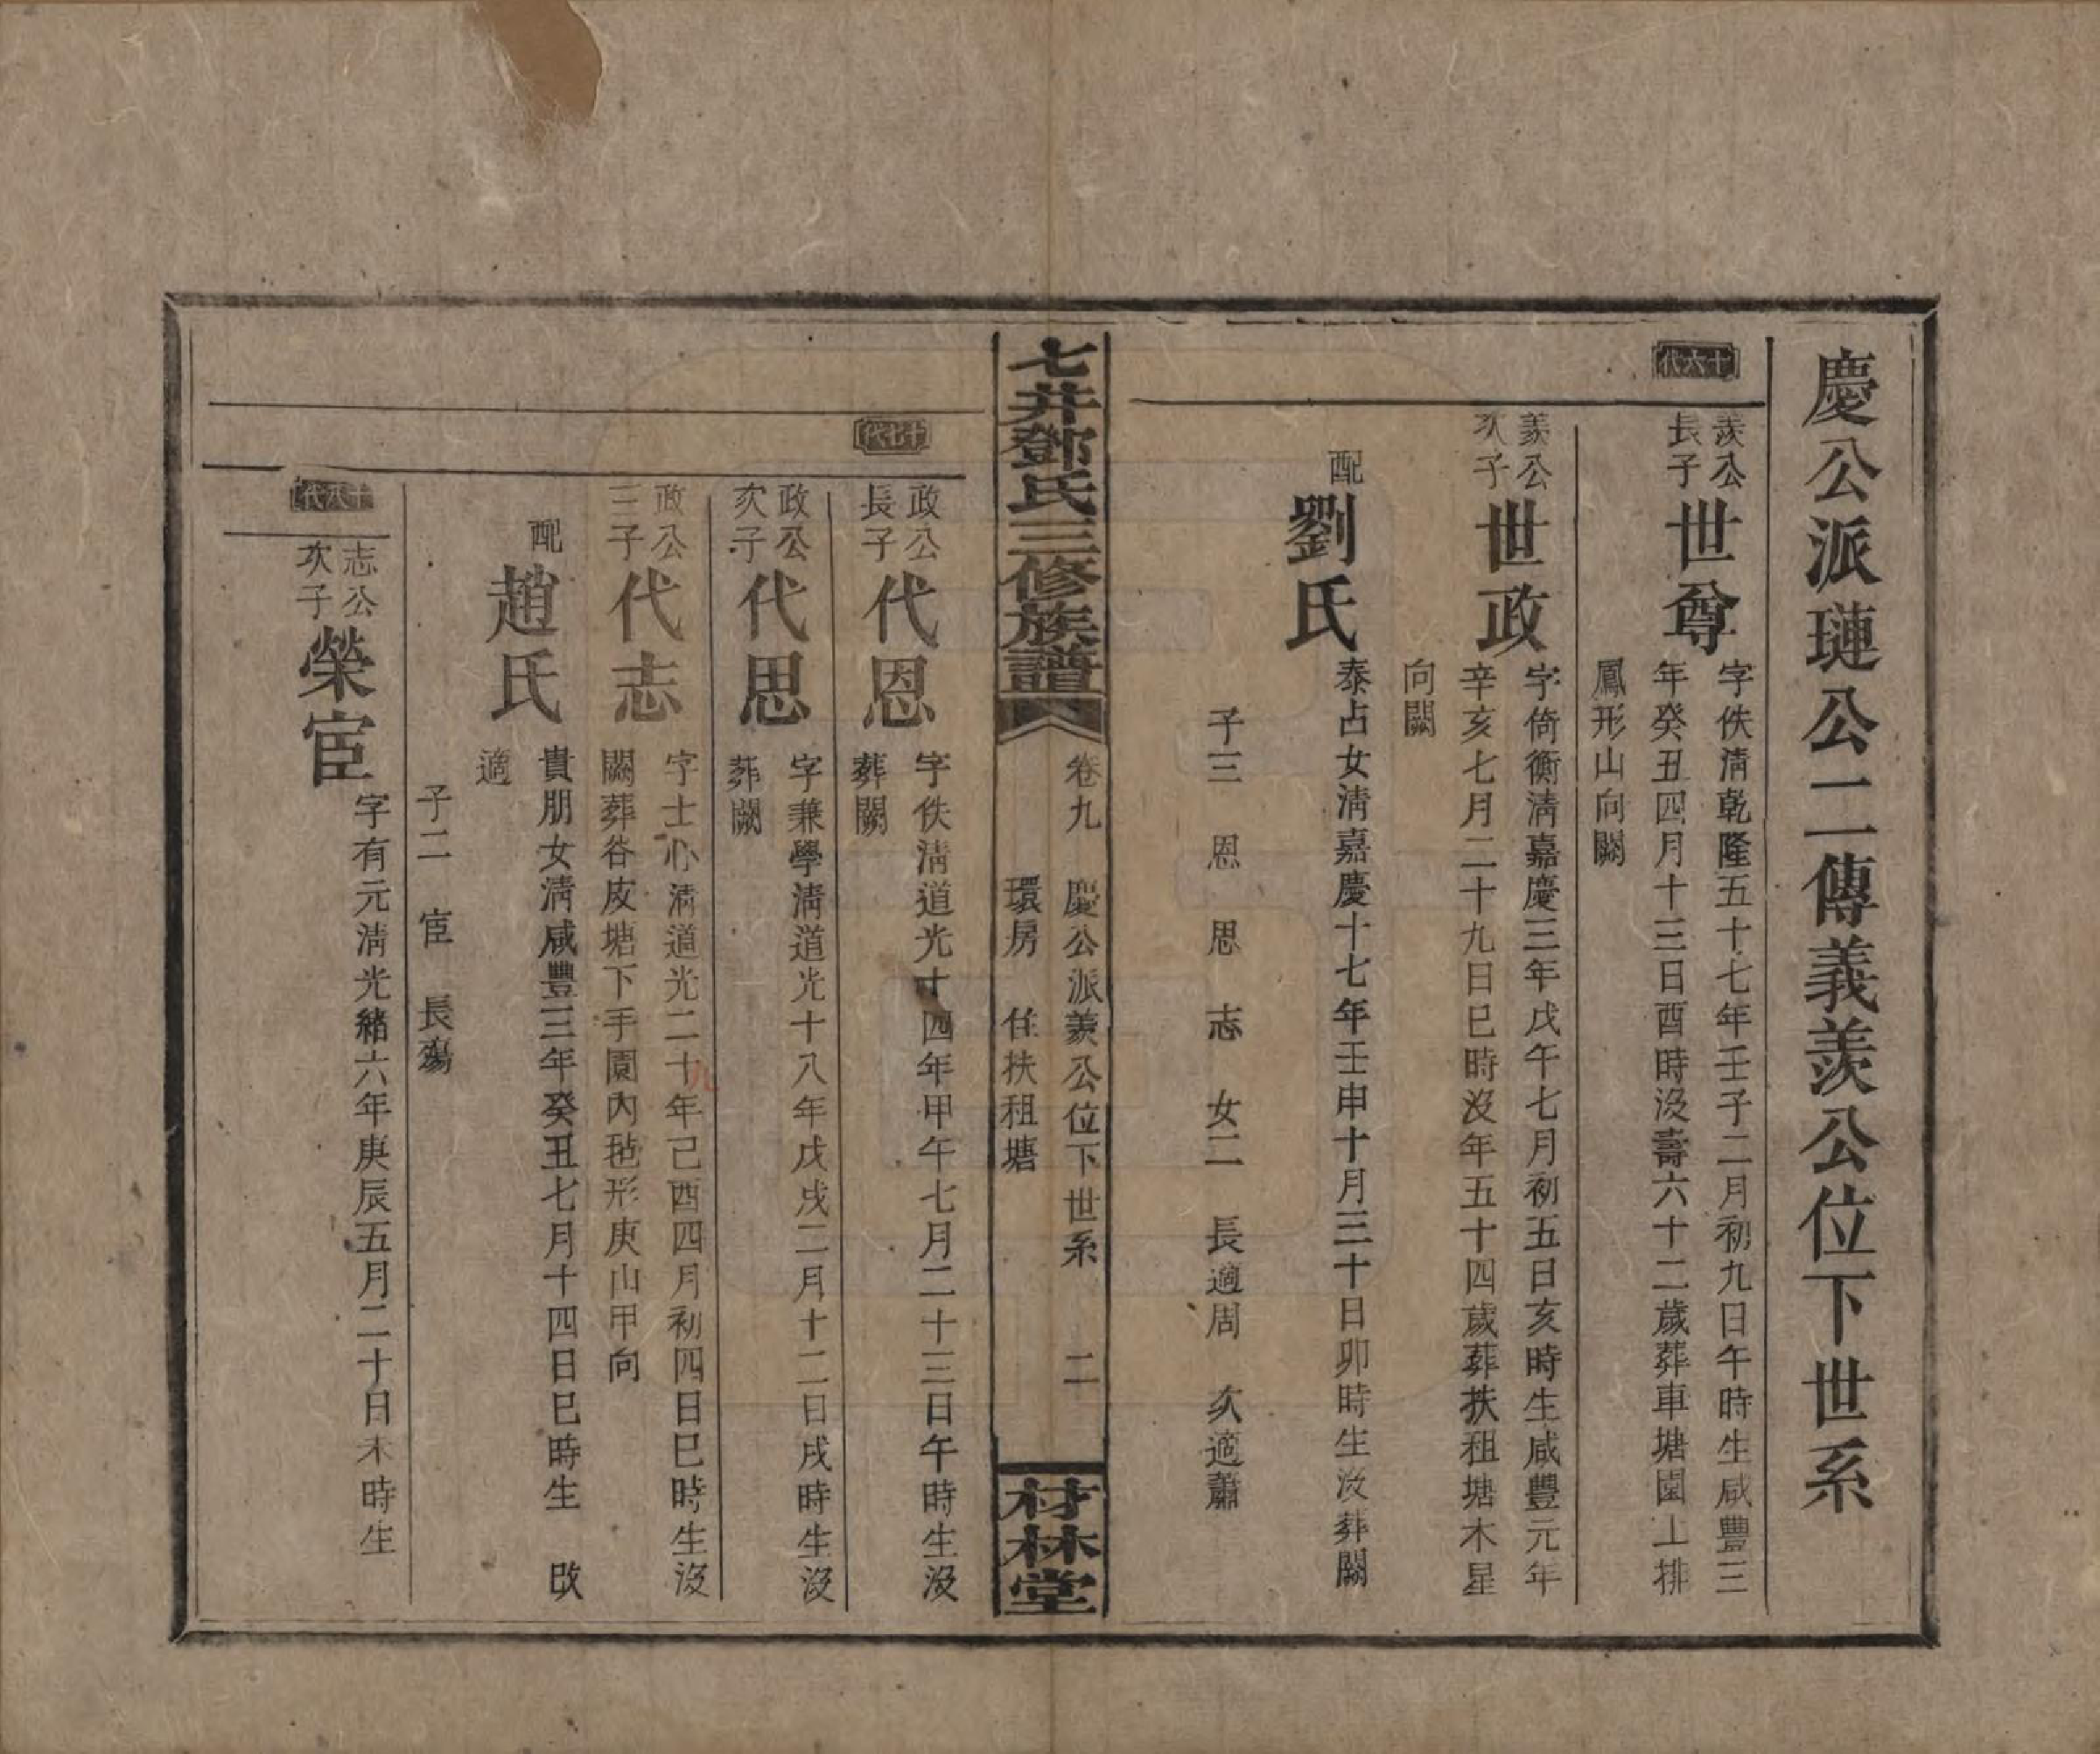 慶公派璉公二傳義羨公位下世系
十六代
羨公長子
世尊
字佚淸乾隆五十七年壬子二月初九日午時生咸豐三
年癸丑四月十三日酉時沒壽六十二歲葬車塘園上排
鳳形山向闕
羨公次子
世政
字倚衡淸嘉慶三年戊午七月初五日亥時生咸豐元年
辛亥七月二十九日巳時沒年五十四歲葬扶祖塘木星
向闕
配
劉氏
泰占女淸嘉慶十七年壬申十月三十日卯時生沒葬闕
子三 恩 思 志 女二 長適周 次適蕭
七井鄧氏三修族譜
卷九 慶公派羨公位下世系 二
環房 住扶祖塘
材林堂
十七代
政公長子
代恩
字佚淸道光十四年甲午七月二十三日午時生沒
葬闕
政公次子
代思
字兼學淸道光十八年戊戌二月十二日戌時生沒
葬闕
政公三子
代志
字士心淸道光二十九年己酉四月初四日巳時生沒
闕葬谷皮塘下手園內毡形庚山甲向
配
趙氏
貴朋女淸咸豐三年癸丑七月十四日巳時生 改
適
子二 宦 長殤
十八代
志公次子
榮宦
字有元淸光緖六年庚辰五月二十日未時生